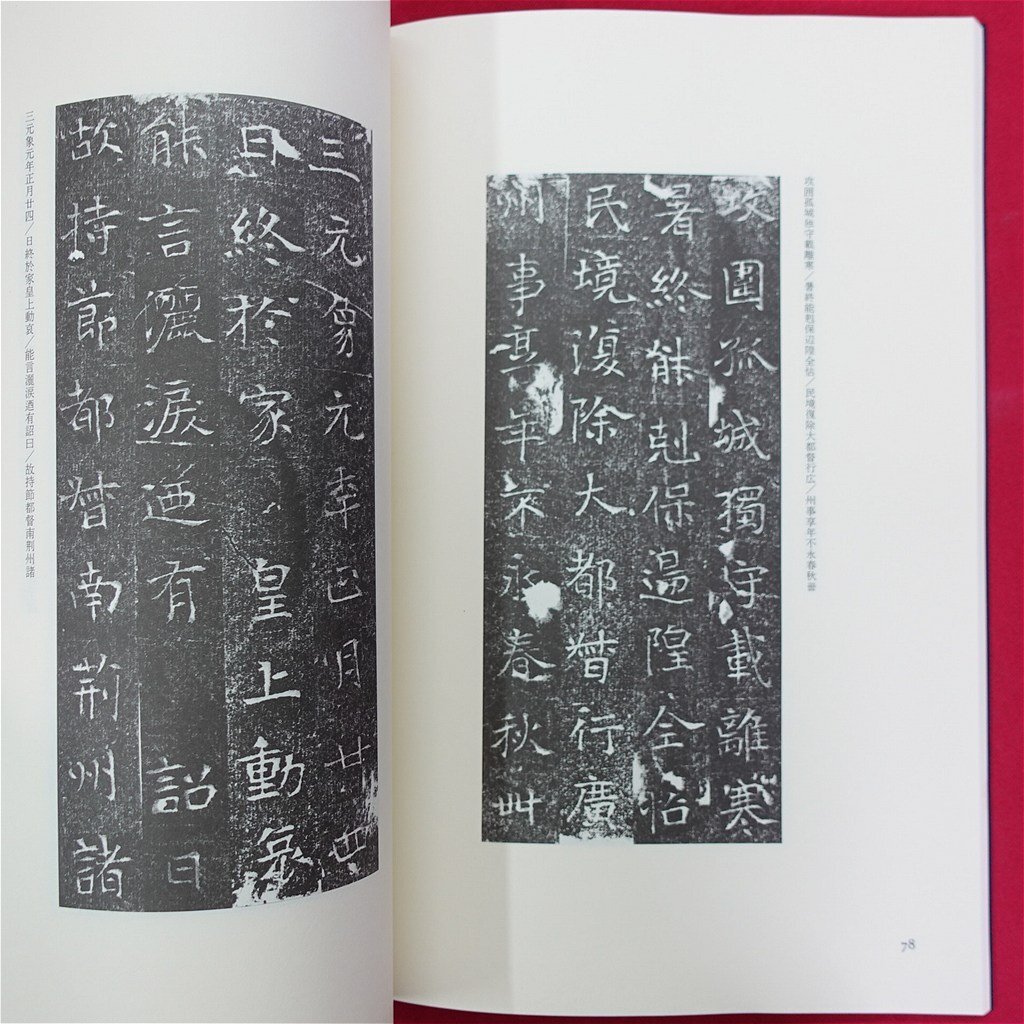 攻囲孤城独守載離寒/暑終能尅保辺隍全怗/民境復除大都督行広/州事享年不永春秋卅
攻圍孤城獨守載離寒
暑終能剋保邊隍全怗
民境復除大都督行廣
州事享年不永春秋卅
78
三元象元年正月廿四
日終於家皇上動哀
能言灑淚迺有詔曰
故持節都督南荊州諸
三元象元年正月廿四/日終於家皇上動哀/能言灑涙迺有詔曰/故持節都督南荊州諸